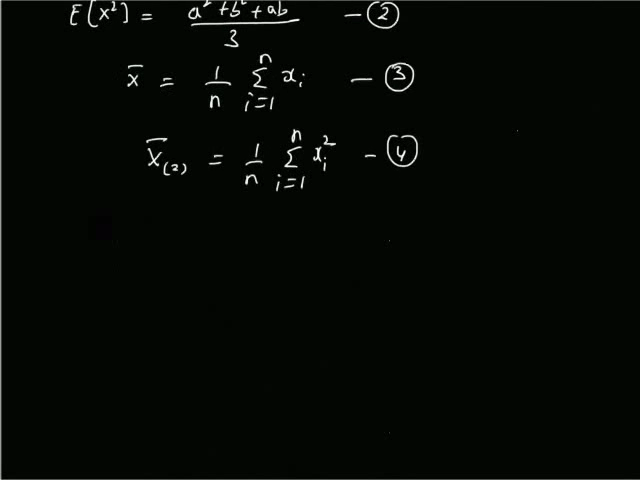 E[X²] = a²+b²+ab / 3 — ②
x̄ = 1/n Σ_{i=1}^{n} x_i — ③
X̄_(2) = 1/n Σ_{i=1}^{n} x_i² — ④